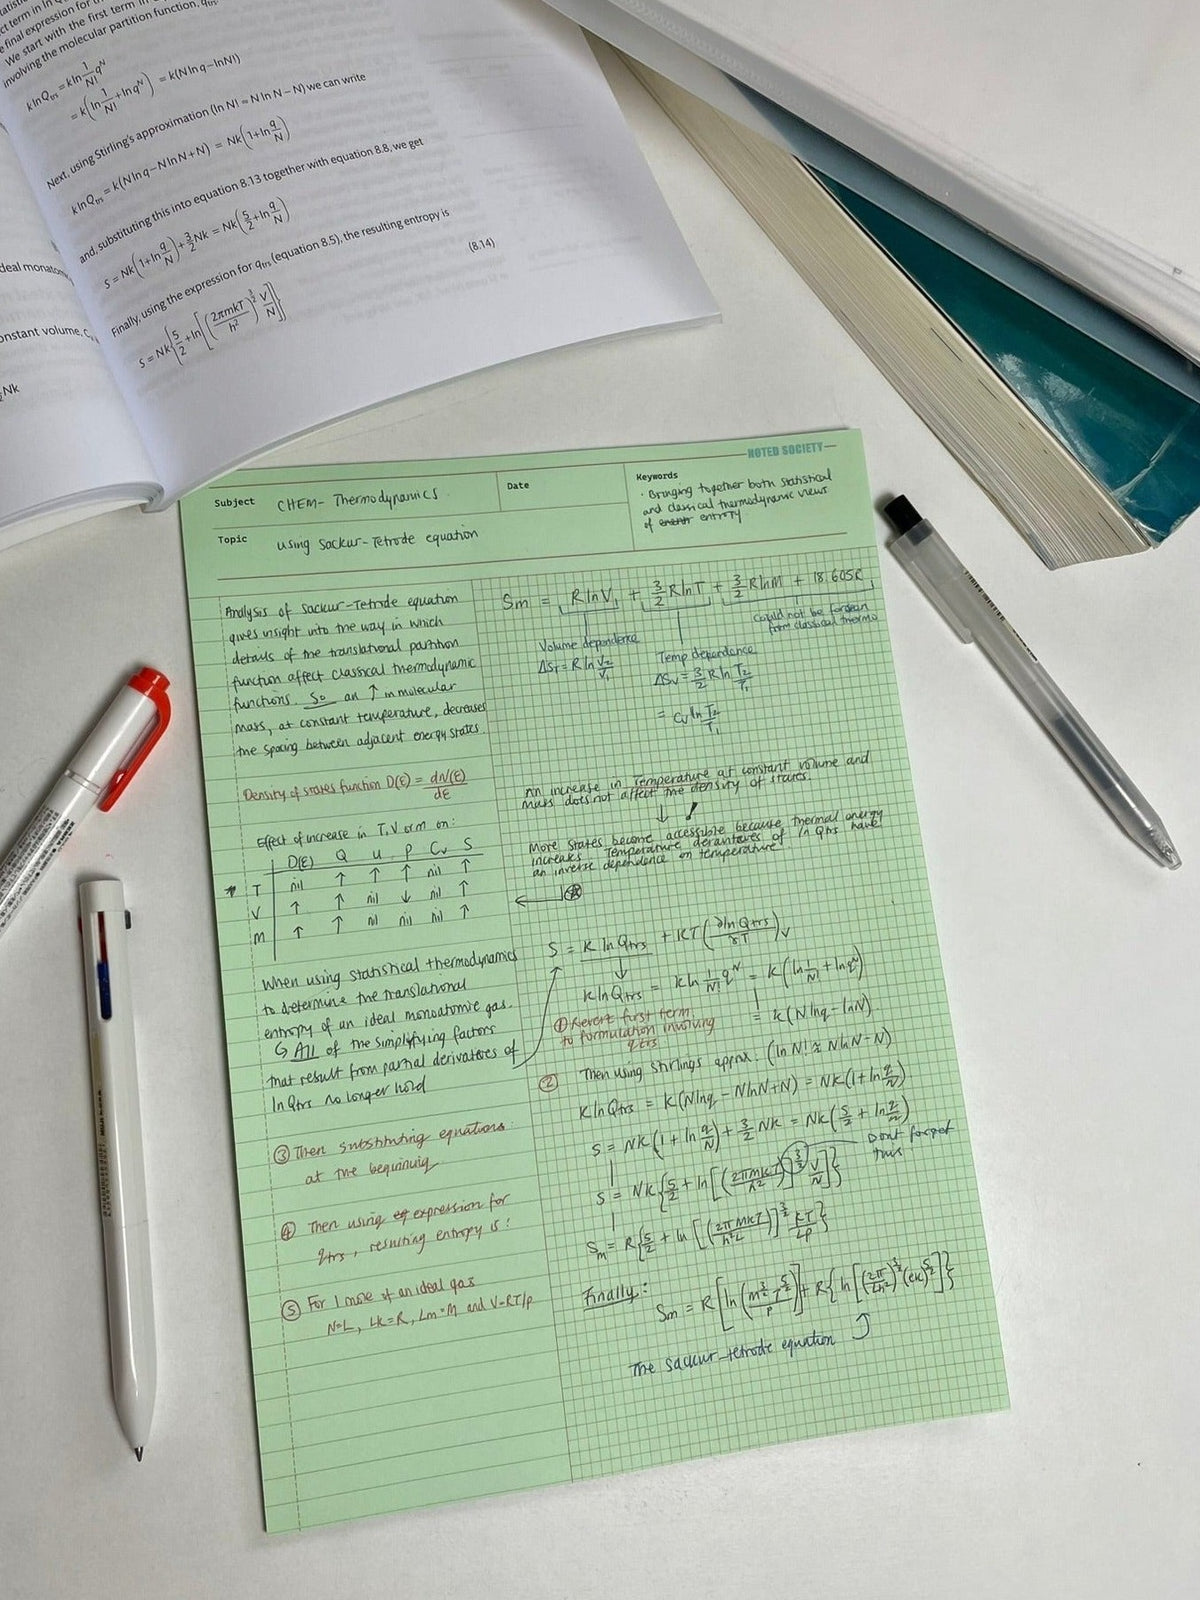 ct term in ln Q
e final expression for th
We start with the first term in
involving the molecular partition function, qtrs
k ln Qtrs = k ln 1/N! q^N
= k(ln 1/N! + ln q^N) = k(N ln q − ln N!)
Next, using Stirling's approximation (ln N! = N ln N − N) we can write
k ln Qtrs = k(N ln q − N ln N + N) = Nk(1 + ln q/N)
and, substituting this into equation 8.13 together with equation 8.8, we get
S = Nk(1 + ln q/N) + 3/2 Nk = Nk(5/2 + ln q/N)
Finally, using the expression for qtrs (equation 8.5), the resulting entropy is
S = Nk{5/2 + ln[(2πmkT/h²)^3/2 V/N]}
(8.14)
deal monatom
onstant volume, C
Nk
NOTED SOCIETY
Subject CHEM- Thermodynamics
Date
Keywords
· Bringing together both statistical
and classical thermodynamic views
of entropy
Topic using Sackur-Tetrode equation
Analysis of Sackur-Tetrode equation
gives insight into the way in which
details of the translational partition
function affect classical thermodynamic
functions. So an ↑ in molecular
mass, at constant temperature, decreases
the spacing between adjacent energy states.
Density of states function D(E) = dN(E)/dE
Effect of increase in T, V or m on:
D(E) Q U P Cv S
* T nil ↑ ↑ ↑ nil ↑
V ↑ ↑ nil ↓ nil ↑
M ↑ ↑ nil nil nil ↑
When using statistical thermodynamics
to determine the translational
entropy of an ideal monoatomic gas.
↳ All of the simplifying factors
that result from partial derivatives of
ln Qtrs no longer hold
③ Then substituting equations
at the beginning
④ Then using expression for
qtrs, resulting entropy is:
⑤ For 1 mole of an ideal gas
N=L, Lk=R, Lm=M and V=RT/p
Sm = R ln V + 3/2 R ln T + 3/2 R ln M + 18.605R
Volume dependence
ΔST = R ln V2/V1
Temp dependance
ΔSV = 3/2 R ln T2/T1
= Cv ln T2/T1
could not be
from classical thermo
An increase in Temperature at constant volume and
mass does not affect the density of states.
↓ !
More states become accessible because thermal energy
increases Temperature derivatives of ln Qtrs have
an inverse dependence on temperature
S = k ln Qtrs + kT(∂ln Qtrs/∂T)V
k ln Qtrs = k ln 1/N! q^N = k(ln 1/N! + ln q^N)
= k(N ln q − ln N)
① Revert first term
to formulation involving
qtrs
② Then using Stirlings approx. (ln N! ≈ N ln N − N)
k ln Qtrs = k(N ln q − N ln N + N) = Nk(1 + ln q/N)
S = Nk(1 + ln q/N) + 3/2 Nk = Nk(5/2 + ln q/N)
Dont forget
this
S = Nk{5/2 + ln[(2πmkT/h²)^3/2 V/N]}
Sm = R{5/2 + ln[(2πMkT/h²L)]^3/2 kT/Lp}
Finally:
Sm = R[ln(m^3/2 T^5/2/p)] + R{ln[(2π/Lh²)^3/2 (ek)^5/2]}
The Sackur-tetrode equation